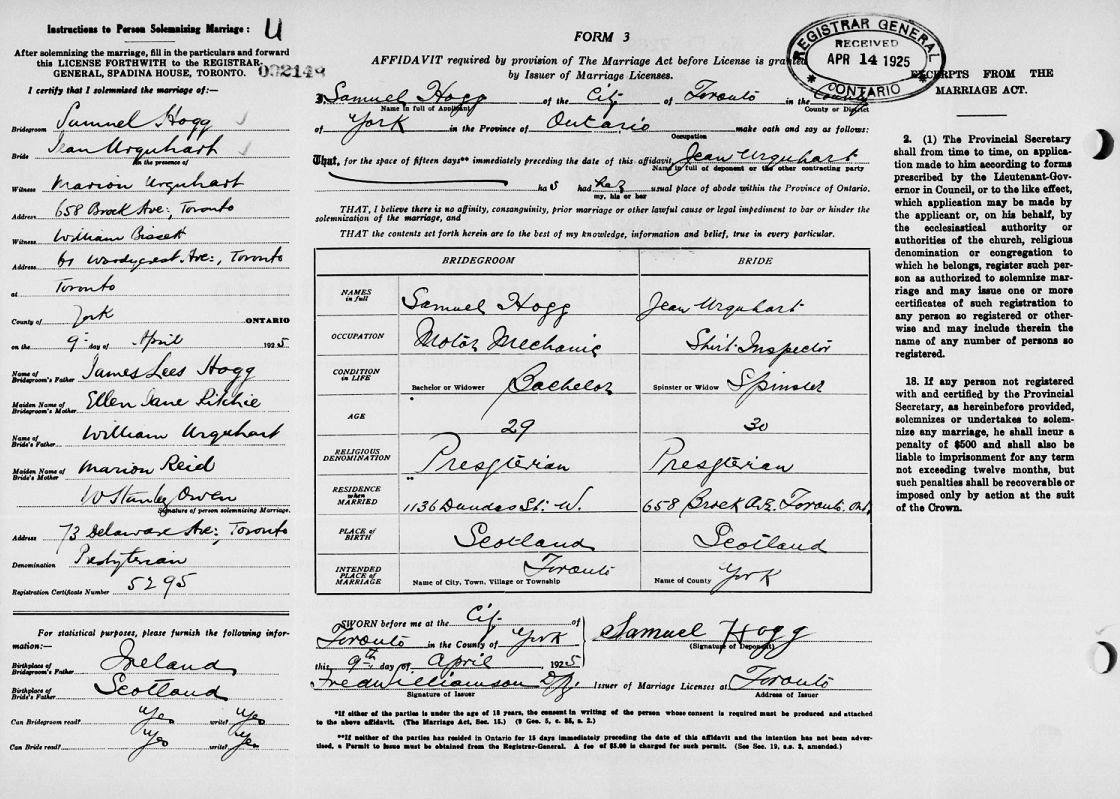 Instructions to Person Solemnizing Marriage: U
After solemnizing the marriage, fill in the particulars and forward
this LICENSE FORTHWITH to the REGISTRAR-
GENERAL, SPADINA HOUSE, TORONTO. 002148
I certify that I solemnized the marriage of:—
Bridegroom Samuel Hogg
Bride Jean Urquhart
in the presence of
Witness Marion Urquhart
Address 658 Brock Ave:, Toronto
Witness William Bissett
Address 61 Woodycrest Ave:, Toronto
at Toronto
County of York ONTARIO
on the 9 day of April 1925
Name of Bridegroom's Father James Lees Hogg
Maiden Name of Bridegroom's Mother Ellen Jane Ritchie
Name of Bride's Father William Urquhart
Maiden Name of Bride's Mother Marion Reid
W Stanley Owen
Signature of person solemnizing Marriage.
Address 73 Delaware Ave:, Toronto
Denomination Presbyterian
Registration Certificate Number 5295
For statistical purposes, please furnish the following infor-
mation:—
Birthplace of Bridegroom's Father Ireland
Birthplace of Bride's Father Scotland
Can Bridegroom read? Yes write? Yes
Can Bride read? Yes write? Yes
FORM 3
AFFIDAVIT required by provision of The Marriage Act before License is granted
by Issuer of Marriage Licenses.
REGISTRAR GENERAL
RECEIVED
APR 14 1925
ONTARIO
I, Samuel Hogg of the City of Toronto in the County
Name in full of Applicant County or District
of York in the Province of Ontario make oath and say as follows:
Occupation
That, for the space of fifteen days** immediately preceding the date of this affidavit, Jean Urquhart
Name in full of deponent or the other contracting party
has had her usual place of abode within the Province of Ontario.
my, his or her
THAT, I believe there is no affinity, consanguinity, prior marriage or other lawful cause or legal impediment to bar or hinder the
solemnization of the marriage, and
THAT the contents set forth herein are to the best of my knowledge, information and belief, true in every particular.
BRIDEGROOM BRIDE
NAMES in full Samuel Hogg Jean Urquhart
OCCUPATION Motor Mechanic Shirt Inspector
CONDITION in LIFE Bachelor or Widower Bachelor Spinster or Widow Spinster
AGE 29 30
RELIGIOUS DENOMINATION Presgterian Presgterian
RESIDENCE when MARRIED 1136 Dundas St. W. 658 Brock Ave. Toronto. Ont.
PLACE of BIRTH Scotland Scotland
INTENDED PLACE of MARRIAGE Name of City, Town, Village or Township Toronto Name of County York
SWORN before me at the City of
Toronto in the County of York
this 9th day of April 1925
Samuel Hogg
(Signature of Deponent)
Fred Williamson Issuer of Marriage Licenses at Toronto
Signature of Issuer Address of Issuer
*If either of the parties is under the age of 18 years, the consent in writing of the person whose consent is required must be produced and attached
to the above affidavit. (The Marriage Act, Sec. 15.) (9 Geo. 5, c. 35, s. 2.)
**If neither of the parties has resided in Ontario for 15 days immediately preceding the date of this affidavit and the intention has not been adver-
tised, a Permit to Issue must be obtained from the Registrar-General. A fee of $5.00 is charged for such permit. (See Sec. 19, s.s. 2, amended.)
EXCERPTS FROM THE
MARRIAGE ACT.
2. (1) The Provincial Secretary
shall from time to time, on applica-
tion made to him according to forms
prescribed by the Lieutenant-Gov-
ernor in Council, or to the like effect,
which application may be made by
the applicant or, on his behalf, by
the ecclesiastical authority or
authorities of the church, religious
denomination or congregation to
which he belongs, register such per-
son as authorized to solemnize mar-
riage and may issue one or more
certificates of such registration to
any person so registered or other-
wise and may include therein the
name of any number of persons so
registered.
18. If any person not registered
with and certified by the Provincial
Secretary, as hereinbefore provided,
solemnizes or undertakes to solem-
nize any marriage, he shall incur a
penalty of $500 and shall also be
liable to imprisonment for any term
not exceeding twelve months, but
such penalties shall be recoverable or
imposed only by action at the suit
of the Crown.